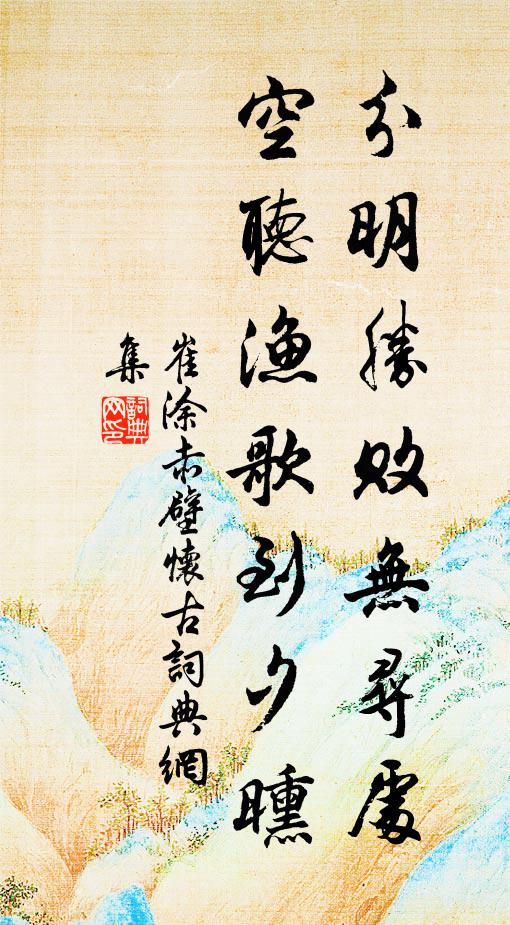 分明勝敗無尋處
空聽漁歌到夕曛
崔涂赤壁懷古詞典網
集
詞典網印